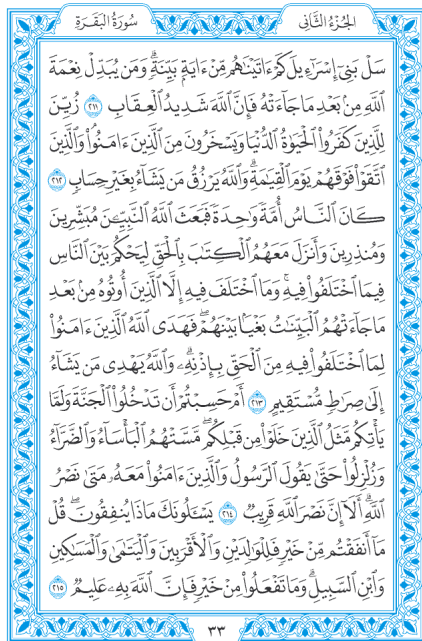 الجُزْءُ الثَّانِي
سُورَةُ البَقَرَةِ
سَلْ بَنِيٓ إِسْرَٰٓءِيلَ كَمْ ءَاتَيْنَٰهُم مِّنْ ءَايَةِۭ بَيِّنَةٖۗ وَمَن يُبَدِّلْ نِعْمَةَ
ٱللَّهِ مِنۢ بَعْدِ مَا جَآءَتْهُ فَإِنَّ ٱللَّهَ شَدِيدُ ٱلْعِقَابِ ٢١١ زُيِّنَ
لِلَّذِينَ كَفَرُواْ ٱلْحَيَوٰةُ ٱلدُّنْيَا وَيَسْخَرُونَ مِنَ ٱلَّذِينَ ءَامَنُواْۘ وَٱلَّذِينَ
ٱتَّقَوْاْ فَوْقَهُمْ يَوْمَ ٱلْقِيَٰمَةِۗ وَٱللَّهُ يَرْزُقُ مَن يَشَآءُ بِغَيْرِ حِسَابٖ ٢١٢
كَانَ ٱلنَّاسُ أُمَّةٗ وَٰحِدَةٗ فَبَعَثَ ٱللَّهُ ٱلنَّبِيِّـۧنَ مُبَشِّرِينَ
وَمُنذِرِينَ وَأَنزَلَ مَعَهُمُ ٱلْكِتَٰبَ بِٱلْحَقِّ لِيَحْكُمَ بَيْنَ ٱلنَّاسِ
فِيمَا ٱخْتَلَفُواْ فِيهِۚ وَمَا ٱخْتَلَفَ فِيهِ إِلَّا ٱلَّذِينَ أُوتُوهُ مِنۢ بَعْدِ
مَا جَآءَتْهُمُ ٱلْبَيِّنَٰتُ بَغْيَۢا بَيْنَهُمْۖ فَهَدَى ٱللَّهُ ٱلَّذِينَ ءَامَنُواْ
لِمَا ٱخْتَلَفُواْ فِيهِ مِنَ ٱلْحَقِّ بِإِذْنِهِۦۗ وَٱللَّهُ يَهْدِي مَن يَشَآءُ
إِلَىٰ صِرَٰطٖ مُّسْتَقِيمٍ ٢١٣ أَمْ حَسِبْتُمْ أَن تَدْخُلُواْ ٱلْجَنَّةَ وَلَمَّا
يَأْتِكُم مَّثَلُ ٱلَّذِينَ خَلَوْاْ مِن قَبْلِكُمۖ مَّسَّتْهُمُ ٱلْبَأْسَآءُ وَٱلضَّرَّآءُ
وَزُلْزِلُواْ حَتَّىٰ يَقُولَ ٱلرَّسُولُ وَٱلَّذِينَ ءَامَنُواْ مَعَهُۥ مَتَىٰ نَصْرُ
ٱللَّهِۗ أَلَآ إِنَّ نَصْرَ ٱللَّهِ قَرِيبٞ ٢١٤ يَسْـَٔلُونَكَ مَاذَا يُنفِقُونَۖ قُلْ
مَآ أَنفَقْتُم مِّنْ خَيْرٖ فَلِلْوَٰلِدَيْنِ وَٱلْأَقْرَبِينَ وَٱلْيَتَٰمَىٰ وَٱلْمَسَٰكِينِ
وَٱبْنِ ٱلسَّبِيلِۗ وَمَا تَفْعَلُواْ مِنْ خَيْرٖ فَإِنَّ ٱللَّهَ بِهِۦ عَلِيمٞ ٢١٥
٣٣